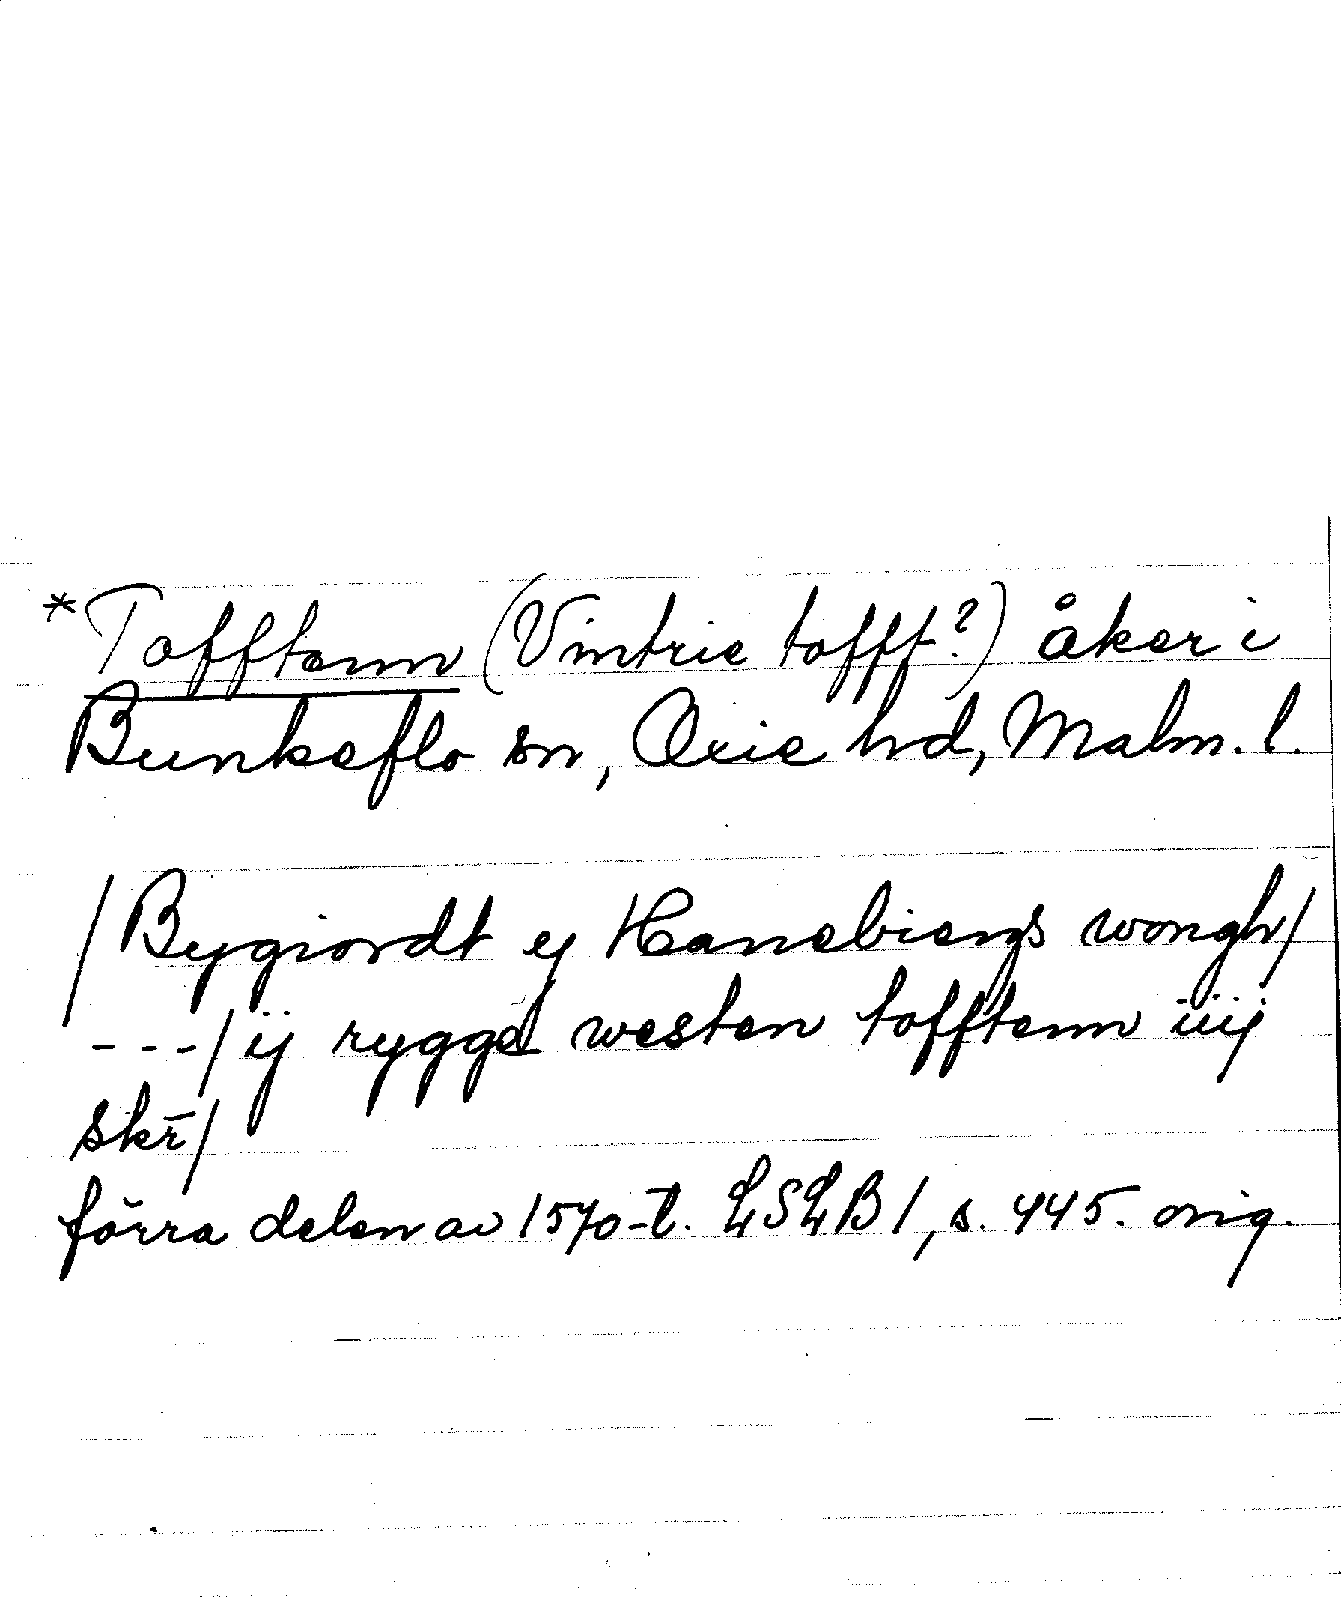 *Tofftenn (Vintrie tofft?) åker i
Bunkeflo sn, Oxie hd, Malm. l.
/Bygiordt ej Hanebiergs wongh/
---/ ij rygge westen tofftenn iiij
skr̄/
förra delen av 1570-t. LSLB 1, s. 445. orig.